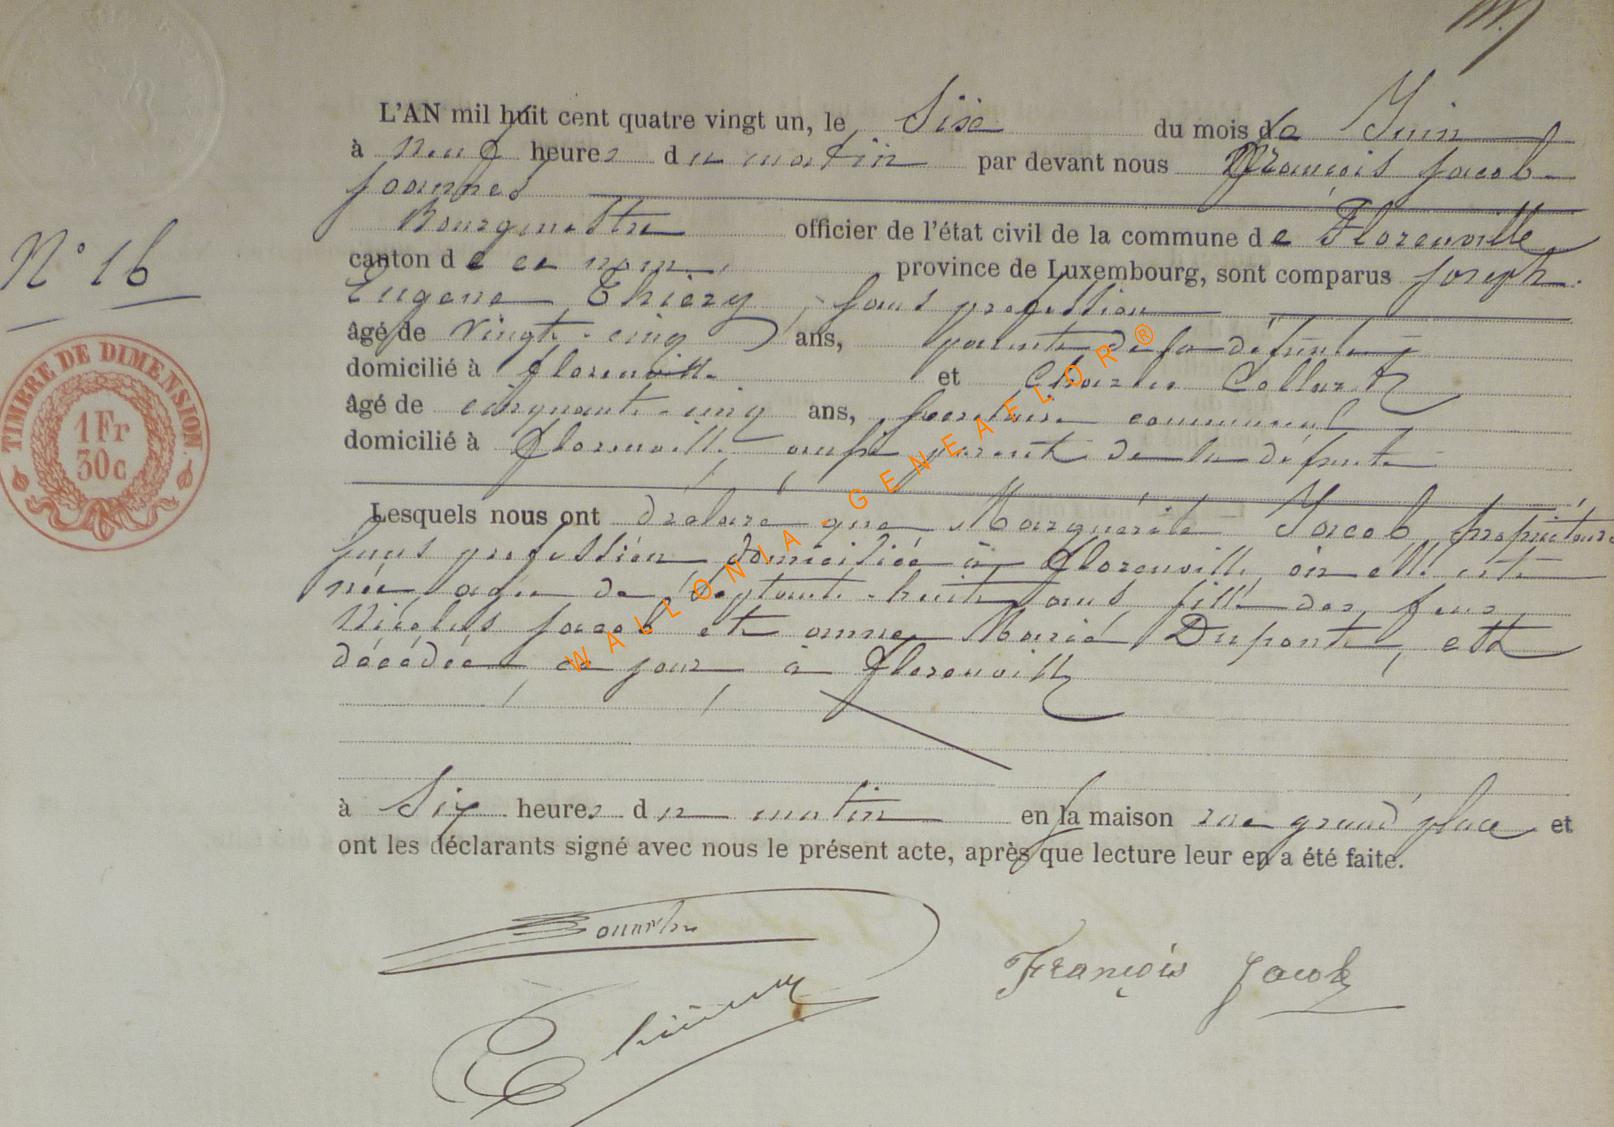 L'AN mil huit cent quatre vingt un, le Sise du mois de Juin
à neuf heures du matin par devant nous François Jacob
Joannes
Bourgmestre officier de l'état civil de la commune de Florenville
canton de ce nom, province de Luxembourg, sont comparus Joseph
N° 16
Eugene Thiery, sans profession
âgé de vingt-cinq ans, parent de la défunte
domicilié à florenville et Charles Collard
âgé de cinquante-cinq ans, secrétaire communal
domicilié à florenville, parent de la défunte
Lesquels nous ont déclaré que Marguérite Jacob, propriétaire
sans profession domiciliée à florenville, où elle est
née agée de septante-huit ans fille des feus
Nicolas Jacob et anne Marie Dupont, est
décédée ce jour à florenville
à Six heures du matin en sa maison rue grand place et
ont les déclarants signé avec nous le présent acte, après que lecture leur en a été faite.
François Jacob
TIMBRE DE DIMENSION.
1 Fr
30c
WALLONIA.GENEAFLOR®